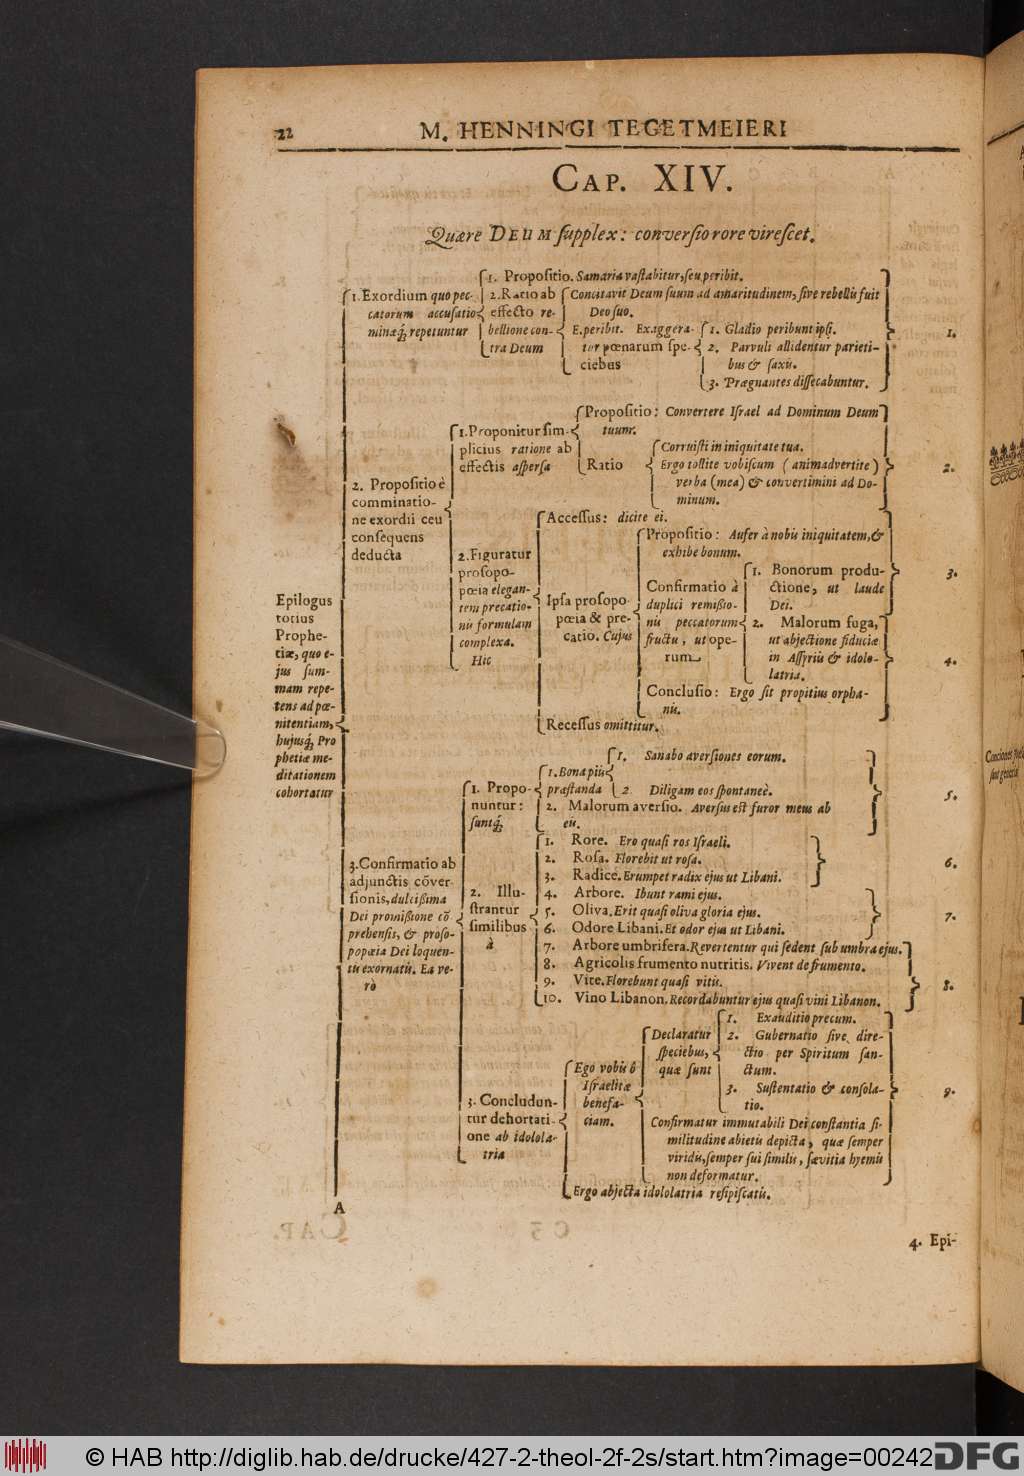 22
M. HENNINGI TEGETMEIERI
CAP. XIV.
Quære DEUM supplex: conversio rore virescet.
Epilogus
totius
Prophe-
tiæ, quo e-
jus sum-
mam repe-
tens ad pœ-
nitentiam,
hujusq́; Pro
phetiæ me-
ditationem
cohortatur
1. Exordium quo pec-
catorum accusatio
minaq́; repetuntur
1. Propositio. Samaria vastabitur, seu peribit.
2. Ratio ab
effecto re-
bellione con-
tra Deum
Concitavit Deum suum ad amaritudinem, sive rebellis fuit
Deo suo.
E. peribit. Exaggera-
tur pœnarum spe-
ciebus
1. Gladio peribunt ipsi.
2. Parvuli allidentur parieti-
bus & saxis.
3. Prægnantes dissecabuntur.
1.
2. Propositio è
comminatio-
ne exordii ceu
consequens
deducta
1. Proponitur sim-
plicius ratione ab
effectis aspersa
Propositio: Convertere Israel ad Dominum Deum
tuum.
Ratio
Corruisti in iniquitate tua.
Ergo tollite vobiscum (animadvertite)
verba (mea) & convertimini ad Do-
minum.
2.
2. Figuratur
prosopo-
pœia elegan-
tem precatio-
nis formulam
complexa.
Hic
Accessus: dicite ei.
Ipsa prosopo-
pœia & pre-
catio. Cujus
Propositio: Aufer à nobis iniquitatem, &
exhibe bonum.
Confirmatio à
duplici remissio-
nis peccatorum
fructu, ut ope-
rum
1. Bonorum produ-
ctione, ut laude
Dei.
3.
2. Malorum fuga,
ut abjectione fiduciæ
in Assyriis & idolo-
latria.
4.
Conclusio: Ergo sit propitius orpha-
nis.
Recessus omittitur.
3. Confirmatio ab
adjunctis cõver
sionis, dulcissima
Dei promissione cõ
prehensis, & proso-
popœia Dei loquen-
tis exornatis. Ea ve-
rò
1. Propo-
nuntur:
suntq́;
1. Bona piis
præstanda
1. Sanabo aversiones eorum.
2 Diligam eos spontaneè.
2. Malorum aversio. Aversus est furor meus ab
eis.
5.
2. Illu-
strantur
similibus
à
1. Rore. Ero quasi ros Israeli.
2. Rosa. Florebit ut rosa.
3. Radice. Erumpet radix ejus ut Libani.
6.
4. Arbore. Ibunt rami ejus.
5. Oliva. Erit quasi oliva gloria ejus.
6. Odore Libani. Et odor ejus ut Libani.
7.
7. Arbore umbrifera. Revertentur qui sedent sub umbra ejus.
8. Agricolis frumento nutritis. Vivent de frumento.
9. Vite. Florebunt quasi vitis.
10. Vino Libanon. Recordabuntur ejus quasi vini Libanon.
8.
3. Concludun-
tur dehortati-
one ab idolola-
tria
Ego vobis ô
Israelitæ
benefa-
ciam.
Declaratur
speciebus,
quæ sunt
1. Exauditio precum.
2. Gubernatio sive dire-
ctio per Spiritum san-
ctum.
3. Sustentatio & consola-
tio.
Confirmatur immutabili Dei constantia si-
militudine abietis depicta, quæ semper
viridis, semper sui similis, sævitia hyemis
non deformatur.
9.
Ergo abjecta idololatria resipiscatis.
A
4. Epi-
© HAB http://diglib.hab.de/drucke/427-2-theol-2f-2s/start.htm?image=00242
DFG